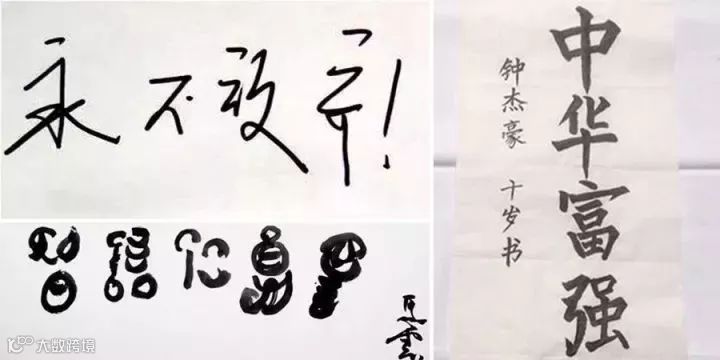 永不放弃!
马云
中华富强
钟杰豪 十岁书
大数跨境